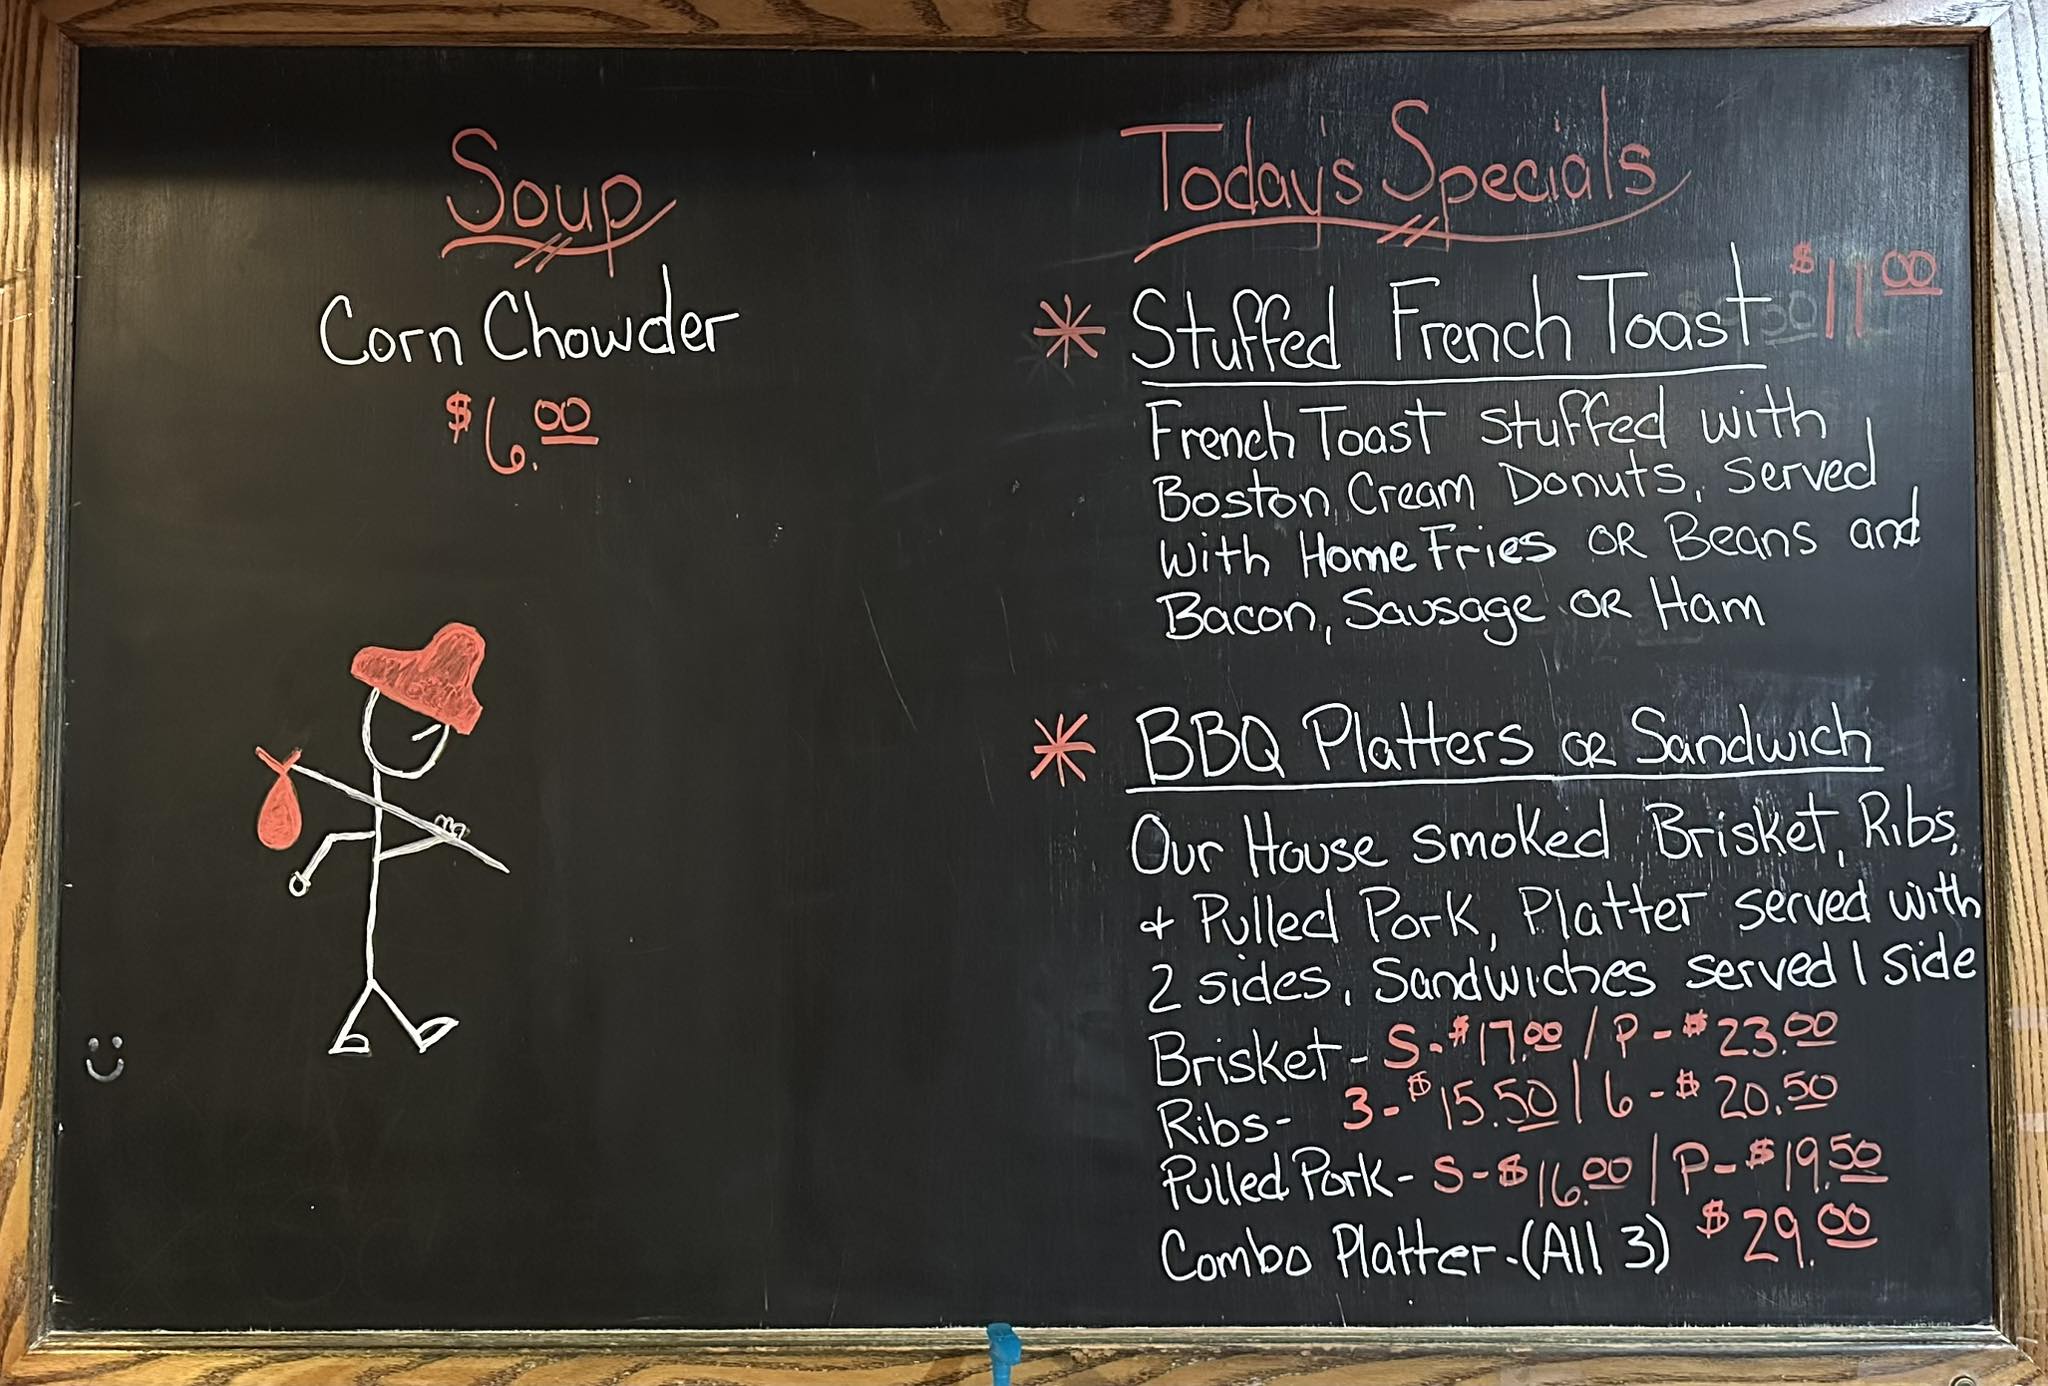 Soup
Corn Chowder
$6.00
Today's Specials
* Stuffed French Toast $11.00
French Toast stuffed with
Boston Cream Donuts, served
with Home Fries OR Beans and
Bacon, Sausage OR Ham
* BBQ Platters OR Sandwich
Our House smoked Brisket, Ribs,
+ Pulled Pork, Platter served with
2 sides, Sandwiches served 1 side
Brisket - S-$17.00 / P-$23.00
Ribs- 3-$15.50 / 6-$20.50
Pulled Pork- S-$16.00 / P-$19.50
Combo Platter-(All 3) $29.00